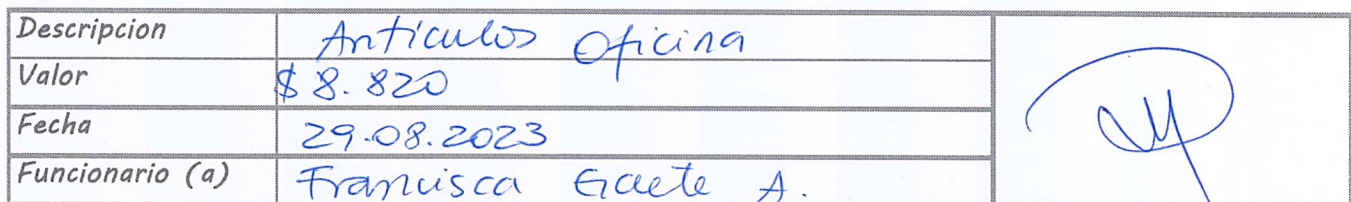 Descripcion Articulos Oficina
Valor $ 8.820
Fecha 29.08.2023
Funcionario (a) Francisca Gaete A.